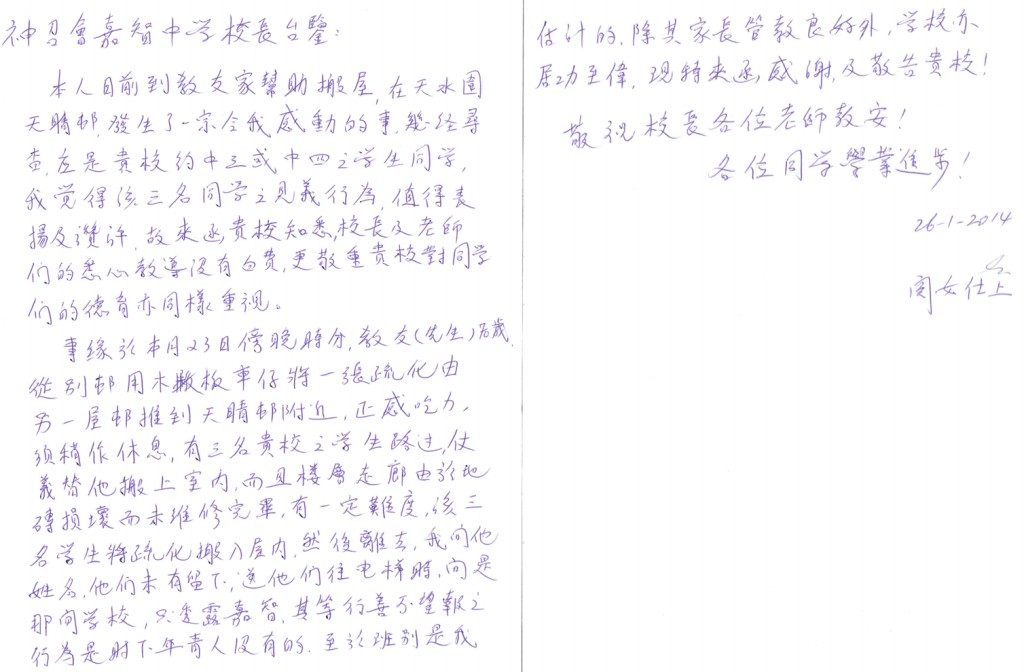 神召會嘉智中学校長台鑒：
本人日前到教友家幫助搬屋，在天水圍
天晴邨，發生了一宗令我感動的事，幾經尋
查，应是貴校約中三或中四之学生同学，
我觉得该三名同学之見義行為，值得表
揚及讚许，故來函貴校知悉，校長及老師
们的悉心教導没有白費，更敬重貴校對同学
们的德育亦同樣重视。
事缘於本月23日傍晚時分，教友(先生)
從別邨用木板車仔將一張疏化由
另一屋邨推到天晴邨附近，正感吃力，
须稍作休息，有三名貴校之学生路过，仗
義替他搬上室内，而且楼層走廊由於地
磚損壞而未维修完畢，有一定難度，该三
名学生將疏化搬入屋内，然後離去，我问他
姓名，他们未有留下，送他们往电梯時，问是
那间学校，只透露嘉智，其等行善不望報之
行為是时下年青人没有的，至於班别是我
估计的，除其家長管教良好外，学校亦
居功至偉，现特來函感谢，及敬告貴校！
敬祝校長各位老師教安！
各位同学學業進步！
26-1-2014
女仕上